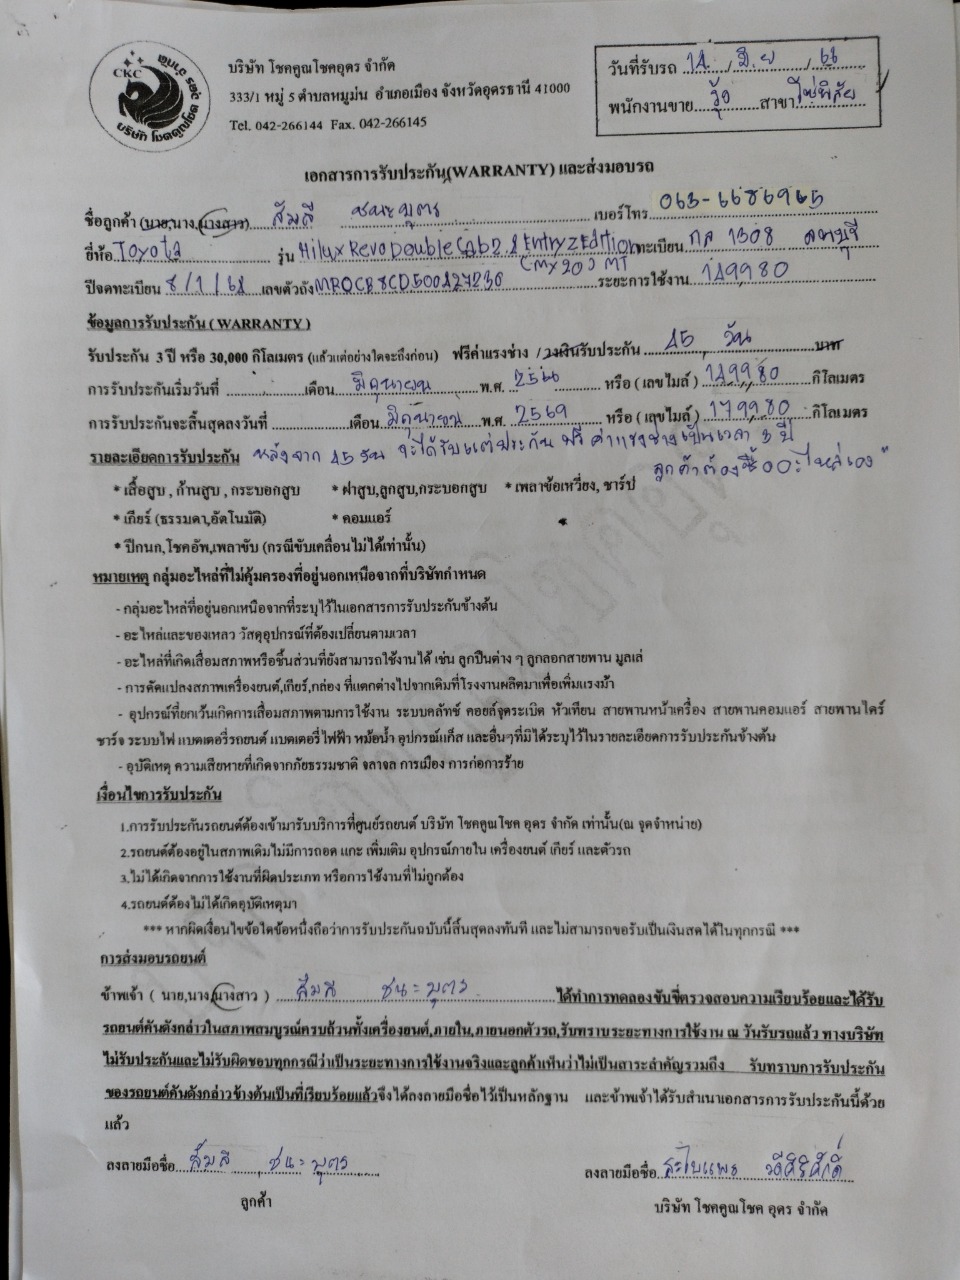 CKC
บริษัท โชคคูณโชคอุดร จำกัด
333/1 หมู่ 5 ตำบลหมูม่น อำเภอเมือง จังหวัดอุดรธานี 41000
Tel. 042-266144 Fax. 042-266145
วันที่รับรถ 14 / มิ.ย / 66
พนักงานขาย รุ้ง สาขา โพนพิสัย
เอกสารการรับประกัน(WARRANTY) และส่งมอบรถ
ชื่อลูกค้า (นาย,นาง,นางสาว) ส้มลี ชนะบุตร เบอร์โทร 063-6686965
ยี่ห้อ Toyota รุ่น Hilux Revo Double Cab 2.8 Entry Z Edition ทะเบียน กล 1308
(MY20) MT
ปีจดทะเบียน 8/1/61 เลขตัวถัง ระยะการใช้งาน 149,980
ข้อมูลการรับประกัน ( WARRANTY )
รับประกัน 3 ปี หรือ 30,000 กิโลเมตร (แล้วแต่อย่างใดจะถึงก่อน) ฟรีค่าแรงช่าง /วงเงินรับประกัน 45 วัน บาท
การรับประกันเริ่มวันที่ เดือน มิถุนายน พ.ศ. 2566 หรือ ( เลขไมล์ ) 149,980 กิโลเมตร
การรับประกันจะสิ้นสุดลงวันที่ เดือน มิถุนายน พ.ศ. 2569 หรือ ( เลขไมล์ ) 179,980 กิโลเมตร
รายละเอียดการรับประกัน หลังจาก 45 วัน จะได้รับแต่ประกัน ฟรี ค่าแรงช่างเป็นเวลา 3 ปี
ลูกค้าต้องซื้ออะไหล่เอง"
* เสื้อสูบ , ก้านสูบ , กระบอกสูบ * ฝาสูบ,ลูกสูบ,กระบอกสูบ * เพลาข้อเหวี่ยง, ชาร์ป
* เกียร์ (ธรรมดา,อัตโนมัติ) * คอมแอร์
* ปีกนก,โชคอัพ,เพลาขับ (กรณีขับเคลื่อนไม่ได้เท่านั้น)
หมายเหตุ กลุ่มอะไหล่ที่ไม่คุ้มครองที่อยู่นอกเหนือจากที่บริษัทกำหนด
- กลุ่มอะไหล่ที่อยู่นอกเหนือจากที่ระบุไว้ในเอกสารการรับประกันข้างต้น
- อะไหล่และของเหลว วัสดุอุปกรณ์ที่ต้องเปลี่ยนตามเวลา
- อะไหล่ที่เกิดเสื่อมสภาพหรือชิ้นส่วนที่ยังสามารถใช้งานได้ เช่น ลูกปืนต่าง ๆ ลูกลอกสายพาน มูลเล่
- การดัดแปลงสภาพเครื่องยนต์,เกียร์,กล่อง ที่แตกต่างไปจากเดิมที่โรงงานผลิตมาเพื่อเพิ่มแรงม้า
- อุปกรณ์ที่ยกเว้นเกิดการเสื่อมสภาพตามการใช้งาน ระบบคลัทช์ คอยล์จุดระเบิด หัวเทียน สายพานหน้าเครื่อง สายพานคอมแอร์ สายพานไดร์
ชาร์จ ระบบไฟ แบตเตอรี่รถยนต์ แบตเตอรี่ไฟฟ้า หม้อน้ำ อุปกรณ์แก็ส และอื่นๆที่มิได้ระบุไว้ในรายละเอียดการรับประกันข้างต้น
- อุบัติเหตุ ความเสียหายที่เกิดจากภัยธรรมชาติ จลาจล การเมือง การก่อการร้าย
เงื่อนไขการรับประกัน
1.การรับประกันรถยนต์ต้องเข้ามารับบริการที่ศูนย์รถยนต์ บริษัท โชคคูณโชค อุดร จำกัด เท่านั้น(ณ จุดจำหน่าย)
2.รถยนต์ต้องอยู่ในสภาพเดิมไม่มีการถอด แกะ เพิ่มเติม อุปกรณ์ภายใน เครื่องยนต์ เกียร์ และตัวรถ
3.ไม่ได้เกิดจากการใช้งานที่ผิดประเภท หรือการใช้งานที่ไม่ถูกต้อง
4.รถยนต์ต้องไม่ได้เกิดอุบัติเหตุมา
*** หากผิดเงื่อนไขข้อใดข้อหนึ่งถือว่าการรับประกันฉบับนี้สิ้นสุดลงทันที และไม่สามารถขอรับเป็นเงินสดได้ในทุกกรณี ***
การส่งมอบรถยนต์
ข้าพเจ้า ( นาย,นาง,นางสาว ) ส้มลี ชนะบุตร ได้ทำการทดลองขับขี่ตรวจสอบความเรียบร้อยและได้รับ
รถยนต์คันดังกล่าวในสภาพสมบูรณ์ครบถ้วนทั้งเครื่องยนต์,ภายใน,ภายนอกตัวรถ,รับทราบระยะทางการใช้งาน ณ วันรับรถแล้ว ทางบริษัท
ไม่รับประกันและไม่รับผิดชอบทุกกรณีว่าเป็นระยะทางการใช้งานจริงและลูกค้าเห็นว่าไม่เป็นสาระสำคัญรวมถึง รับทราบการรับประกัน
ของรถยนต์คันดังกล่าวข้างต้นเป็นที่เรียบร้อยแล้วจึงได้ลงลายมือชื่อไว้เป็นหลักฐาน และข้าพเจ้าได้รับสำเนาเอกสารการรับประกันนี้ด้วย
แล้ว
ลงลายมือชื่อ ส้มลี ชนะบุตร ลงลายมือชื่อ
ลูกค้า บริษัท โชคคูณโชค อุดร จำกัด